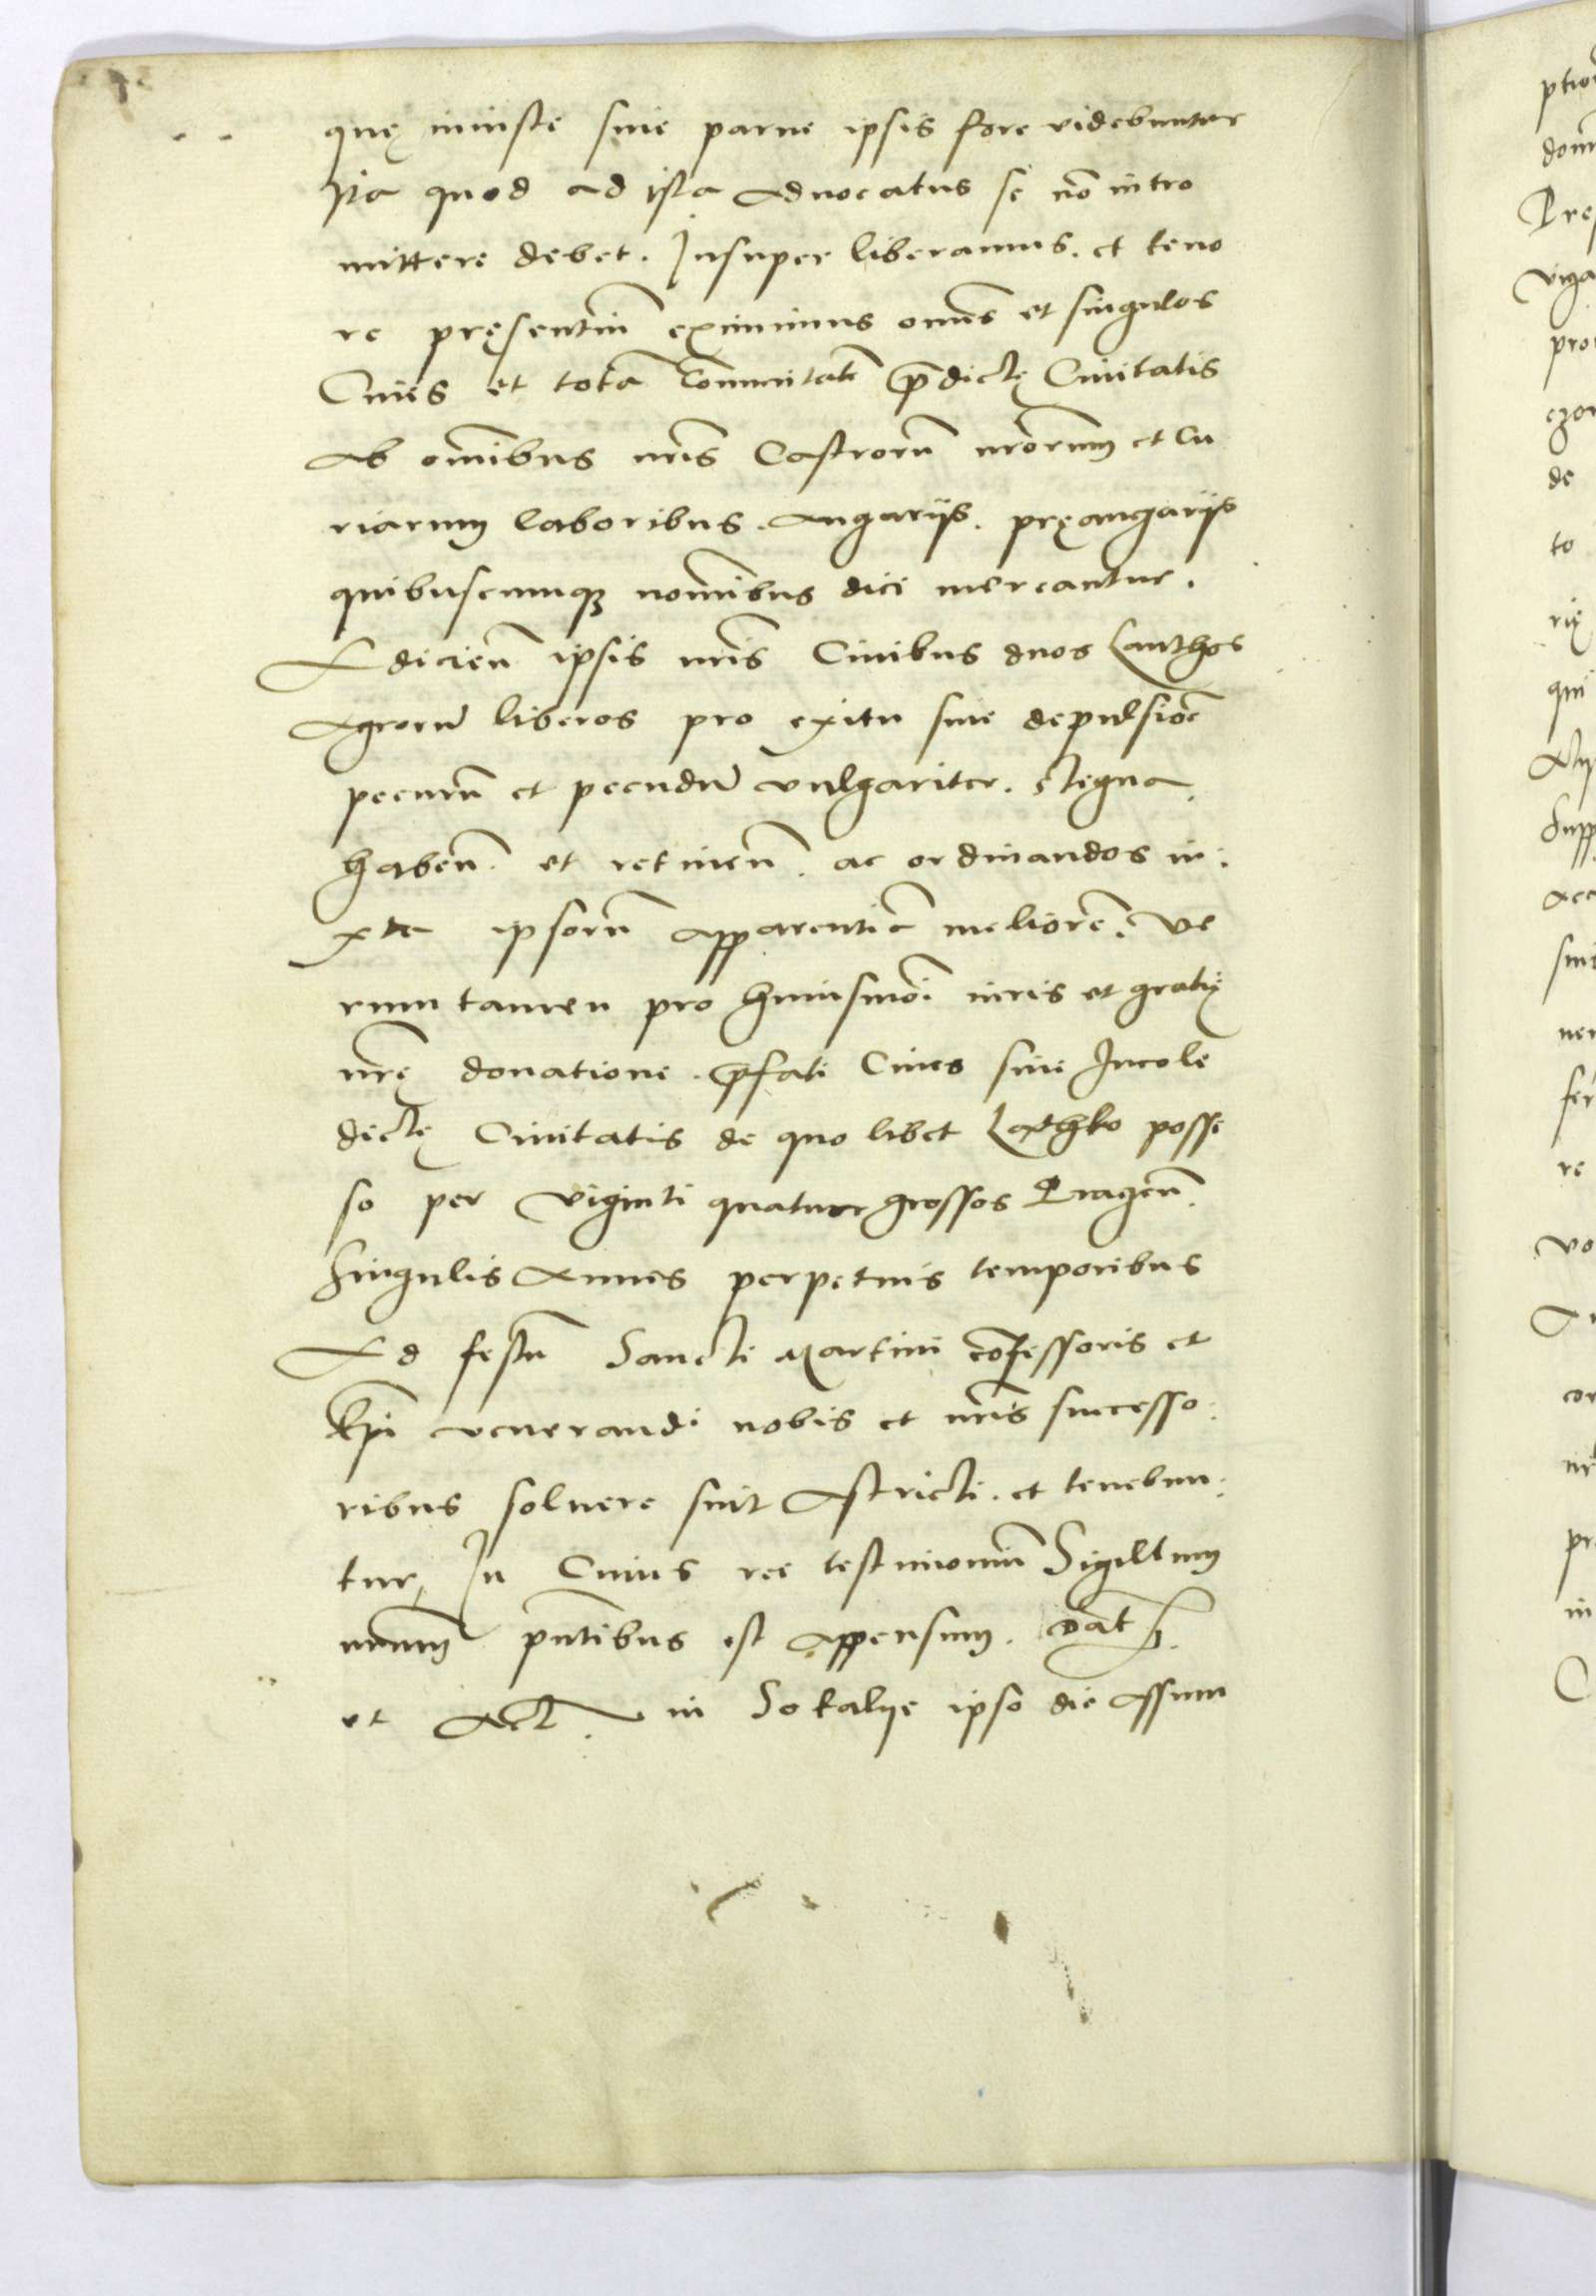 quę iniuste siue parue ipsis fore videbuntur
Ita quod ad ista Aduocatus se nō intro
mittere debet. Insuper liberamus. et teno
re pręsentiū eximimus om̄s et singulos
Ciues et totā Com̄unitatē p̄dictę Ciuitatis
Ab om̄ibus nr̄is Castrorū nrōrum et Cu
riarum laboribus. Angarijs. pręangarijs
quibuscumq nom̄ibus dici mereantur.
Adicien̄ ipsis nr̄is Ciuibus duos Lanthos
Agrorū liberos pro exitu siue depulsiōe
pecorū et pecudū vulgariter. Stegna
haben̄. et retinen̄. ac ordinandos iu:
xta ipsorū apparentiā meliorē. Ve
rum tamen pro huiusmōi iuris et gratię
nr̄ę donatione. p̄fati Ciues siue Incolę
dictę Ciuitatis de quo libet posse
so per viginti quatuor grossos Pragen̄.
Singulis Annis perpetuis temporibus
Ad festū Sancti Martini cōfessoris et
Ep̄i venerandi nobis et nr̄is successo:
ribus soluere sint Astricti. et tenebun:
tur, In Cuius rei testimoniū Sigillum
nr̄um pn̄tibus est appensum. Dat
et Act. in Sokalye ipso die Assum
ptio
dom
Pre
viga
pro
de
to
rię
qui
Supp
acc
siue
ner
fer
re
vo
cor
nr
pr
in